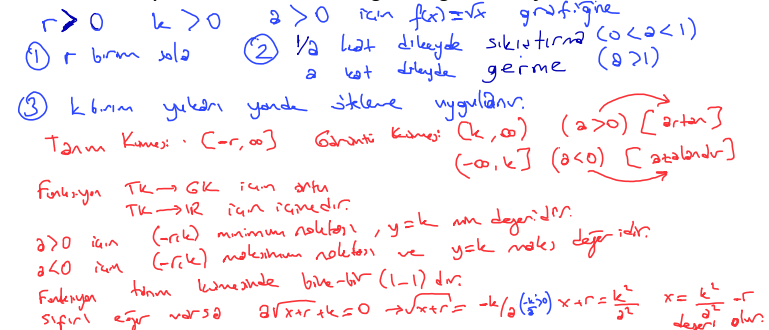 r > 0 k > 0 a > 0 için f(x)=√x grafiğine
① r birim sola ② 1/a kat dikeyde sıkıştırma (0<a<1)
a kat dikeyde germe (a>1)
③ k birim yukarı yönde öteleme uygulanır.
Tanım Kümesi: [-r,∞] Görüntü Kümesi [k,∞) (a>0) [artan]
(-∞,k] (a<0) [azalandır]
Fonksiyon TK→GK için örten
TK→IR için içinedir.
a>0 için (-r,k) minimum noktası, y=k min değeridir.
a<0 için (-r,k) maksimum noktası ve y=k maks değeridir.
Fonksiyon tanım kümesinde bire-bir (1-1) dir.
Sıfırı eğer varsa a√x+r+k=0 →√x+r = -k/a (-k/a>0) x+r = k²/a² x = k²/a² -r
değeri olur.